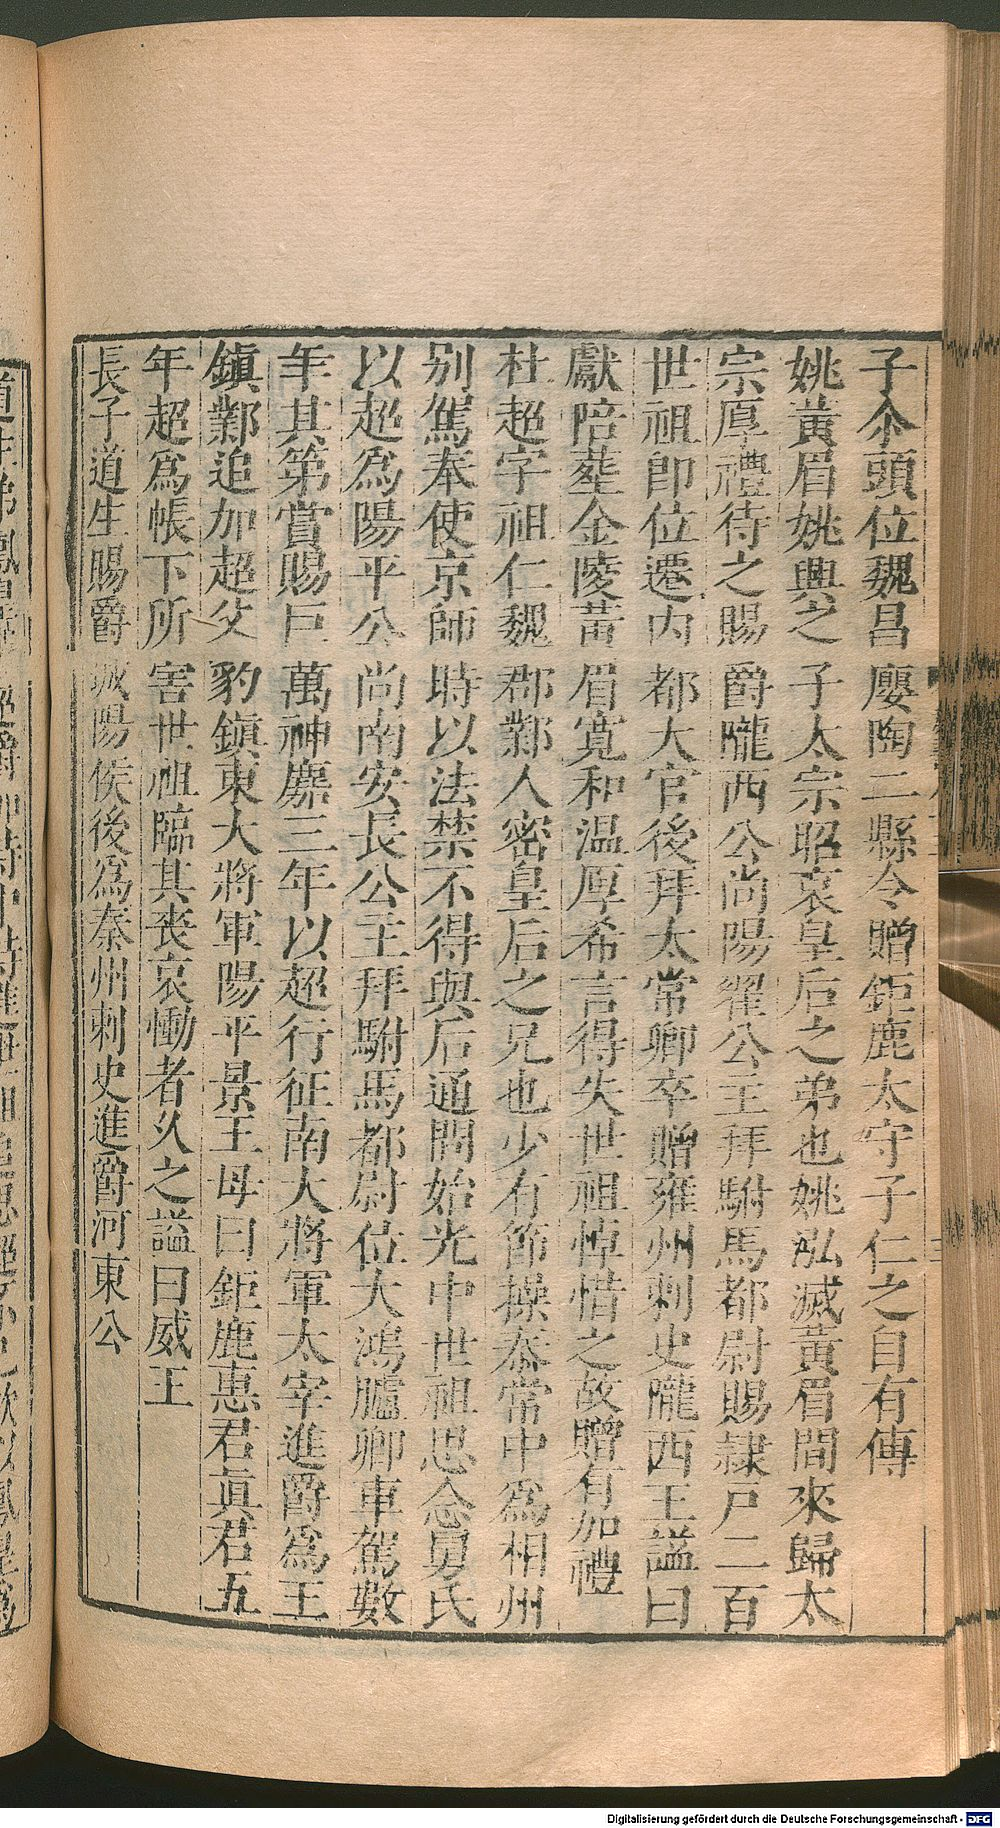 子尒頭位魏昌廮陶二縣令贈鉅鹿太守子仁之自有傳
姚黃眉姚興之子太宗昭哀皇后之弟也姚泓滅黃眉間來歸太
宗厚禮待之賜爵隴西公尚陽翟公主拜駙馬都尉賜隷戸二百
世祖卽位遷内都大官後拜太常卿卒贈雍州刺史隴西王謚曰
獻陪葬金陵黃眉寬和温厚希言得失世祖悼惜之故贈有加禮
杜超字祖仁魏郡鄴人密皇后之兄也少有節操泰常中爲相州
别駕奉使京師時以法禁不得與后通問始光中世祖思念舅氏
以超爲陽平公尚南安長公主拜駙馬都尉位大鴻臚卿車駕數
幸其第賞賜巨萬神䴥三年以超行征南大將軍太宰進爵爲王
鎭鄴追加超父豹鎭東大將軍陽平景王母曰鉅鹿惠君眞君五
年超爲帳下所害世祖臨其喪哀慟者乆之謚曰威王
長子道生賜爵城陽侯後爲秦州刺史進爵河東公
Digitalisierung gefördert durch die Deutsche Forschungsgemeinschaft - DFG